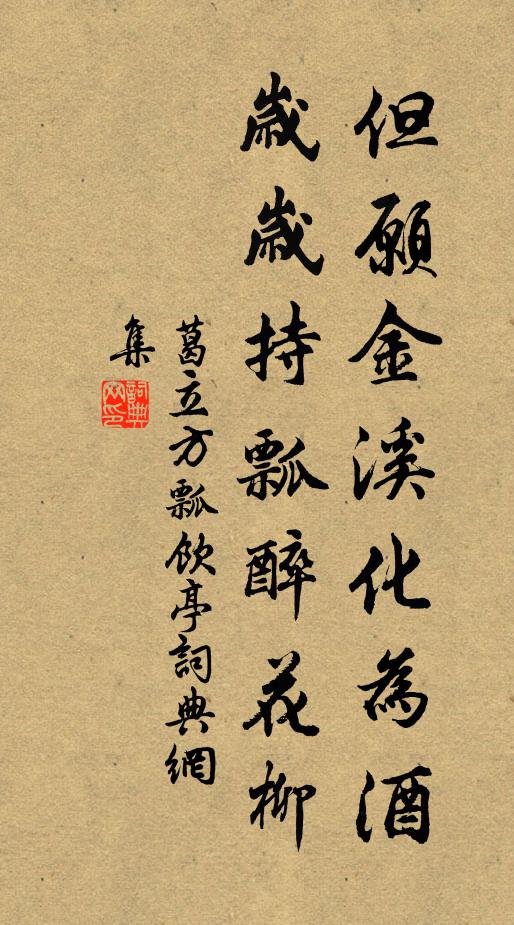 但願金溪化為酒
歲歲持瓢醉花柳
葛立方瓢飲亭詞典網
集
詞典網印